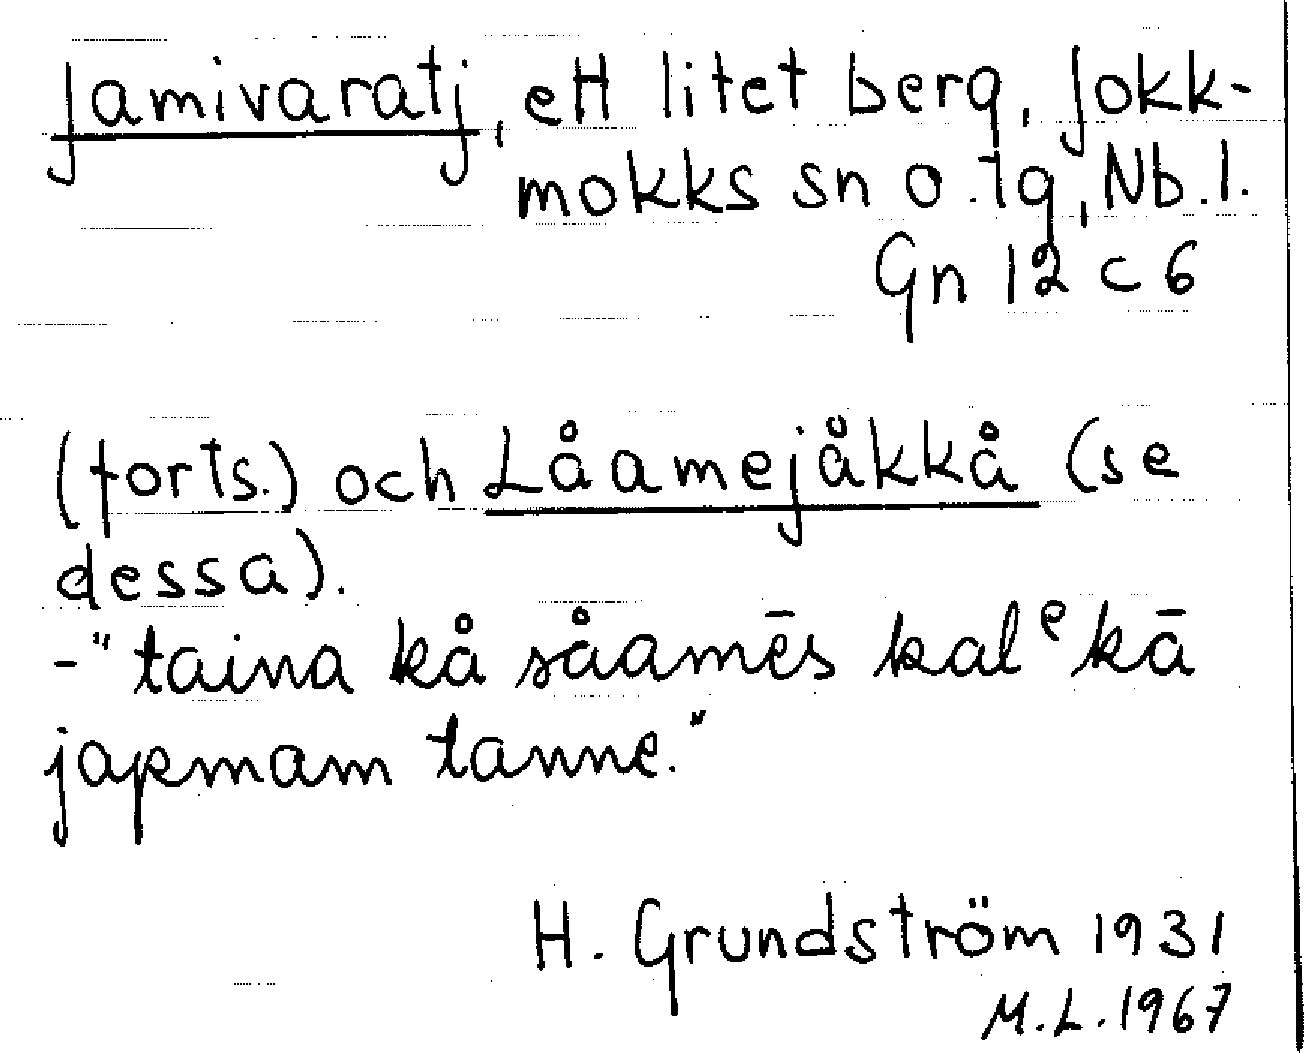 Jamivaratj, ett litet berg, Jokk-
mokks sn o. tg, Nb. l.
Gn 12 c 6
(forts.) och Låamejåkkå (se
dessa).
-"taina kå såamēs kalᵉkā
japmam tanne."
H. Grundström 1931
M.L. 1967